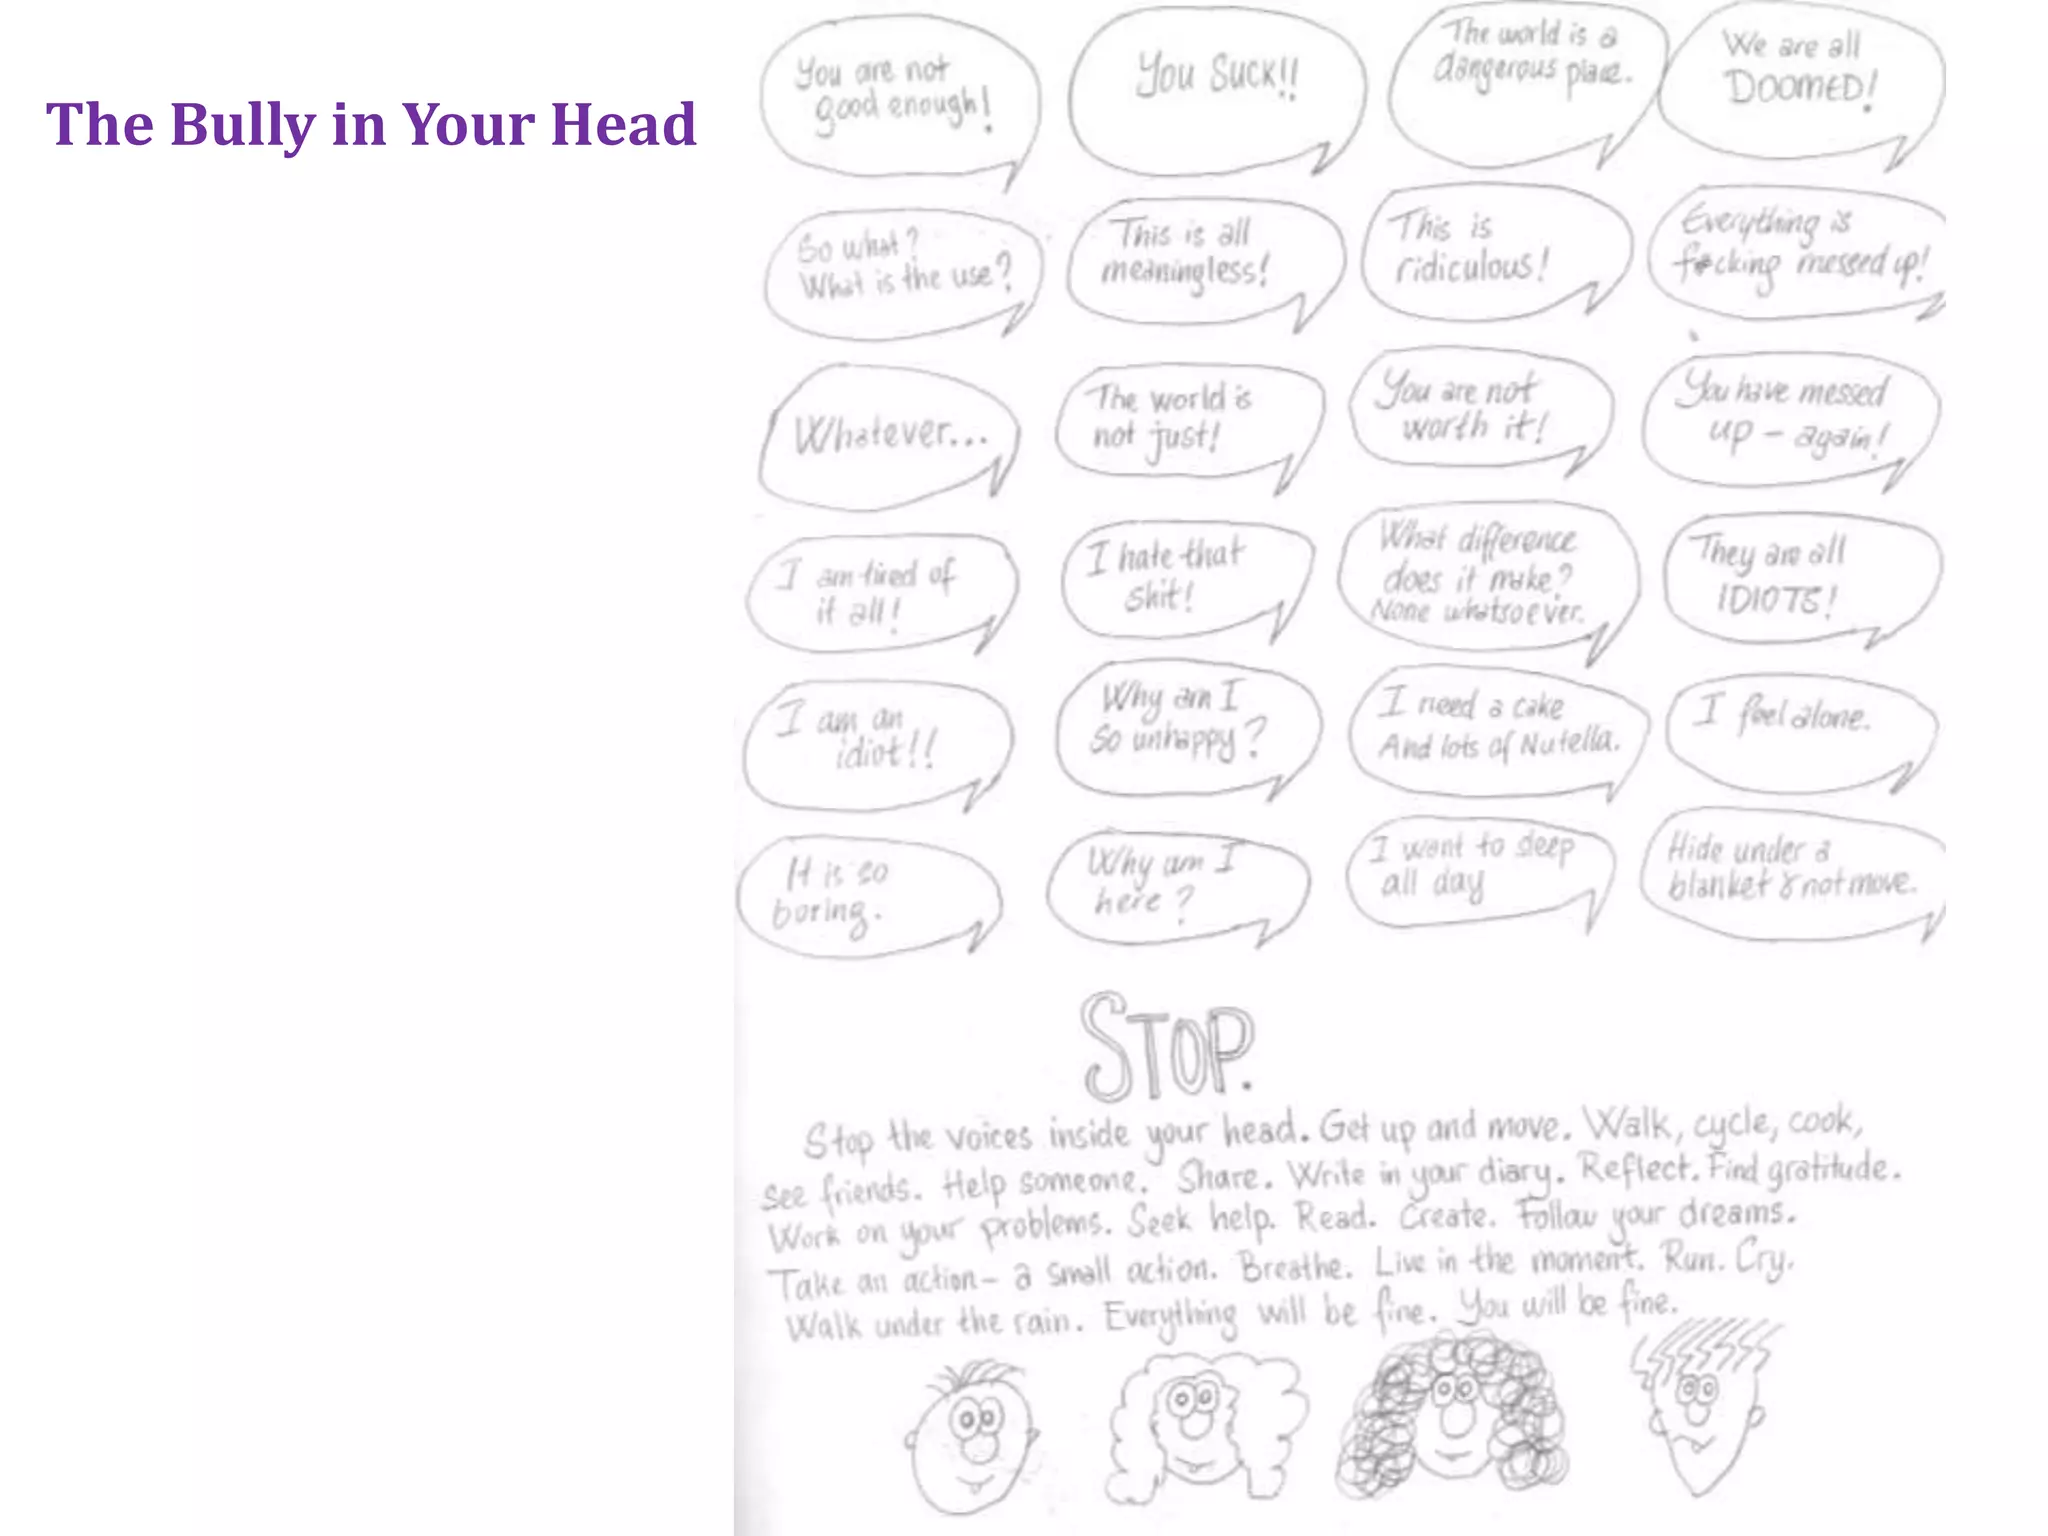 The Bully in Your Head
You are not
good enough!
You SUCK!!
The world is a
dangerous place.
We are all
DOOMED!
So what?
What is the use?
This is all
meaningless!
This is
ridiculous!
Everything is
f*cking messed up!
Whatever...
The world is
not just!
You are not
worth it!
You have messed
up - again!
I am tired of
it all!
I hate that
shit!
What difference
does it make?
None whatsoever.
They are all
IDIOTS!
I am an
idiot!!
Why am I
so unhappy?
I need a cake
And lots of Nutella.
I feel alone.
It is so
boring.
Why am I
here?
I want to sleep
all day
Hide under a
blanket & not move.
STOP.
Stop the voices inside your head. Get up and move. Walk, cycle, cook,
see friends. Help someone. Share. Write in your diary. Reflect. Find gratitude.
Work on your problems. Seek help. Read. Create. Follow your dreams.
Take an action - a small action. Breathe. Live in the moment. Run. Cry.
Walk under the rain. Everything will be fine. You will be fine.